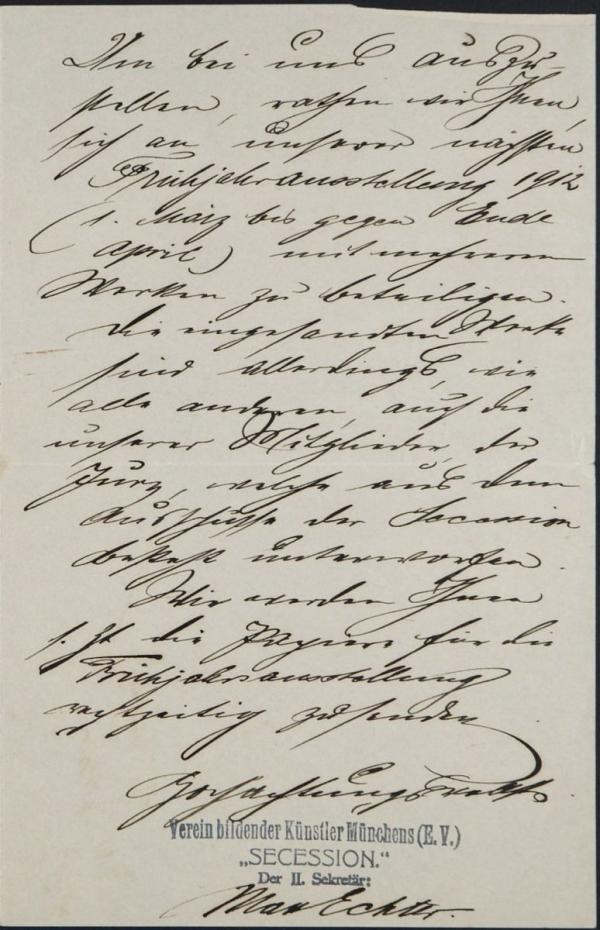 Um bei uns auszu-
stellen, rathen wir Ihnen,
sich an unserer nächsten
Frühjahrausstellung 1912
(1. März bis gegen Ende
April) mit mehreren
Werken zu beteiligen.
Die eingesandten Werke
sind allerdings, wie
alle anderen, auch die
unserer Mitglieder, der
Jury, welche aus dem
Ausschusse der Secession
besteht unterworfen.
Wir werden Ihnen
s. Zt. die Papiere für die
Frühjahrsausstellung
rechtzeitig zusenden
Hochachtungsvollst
Verein bildender Künstler Münchens (E. V.)
„SECESSION.“
Der II. Sekretär:
Max Echter.